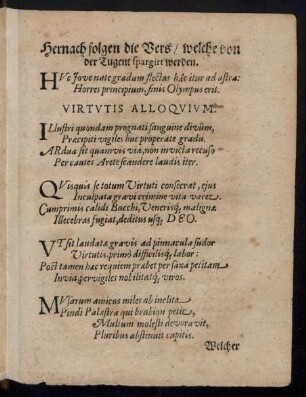 Hernach folgen die Vers / welche von
der Tugent spargirt werden.
HVc Jove nate gradum flectas hâc itur ad astra:
Horres principium, finis Olympus erit.
VIRTVTIS ALLOQVIVM.
ILlustri quondam prognati sanguine divûm,
Præcipiti vigiles huc properate gradu.
ARdua sit quamvis via, non invicta recusq́
Per cautes Arete scandere laudis iter.
QVisquis se totum Virtuti consecrat, ejus
Inculpata gravi crimine vita varet.
Cumprimis calidi Bacchi, Venerisq́, malignæ
Illecebras fugiat, deditus usq́, DEO.
VT sit laudatæ gravis ad pinnacula sudor
Virtutis, primò difficilisq́, labor:
Post tamen hæc requiem præbet per saxa petitam
Invia, pervigiles nobilitatq́, viros.
MVsarum amicus miles ab inclita
Pindi Palæstra qui brabion petit,
Multum molesti devoravit,
Pluribus abstinuit cupitis.
Welcher